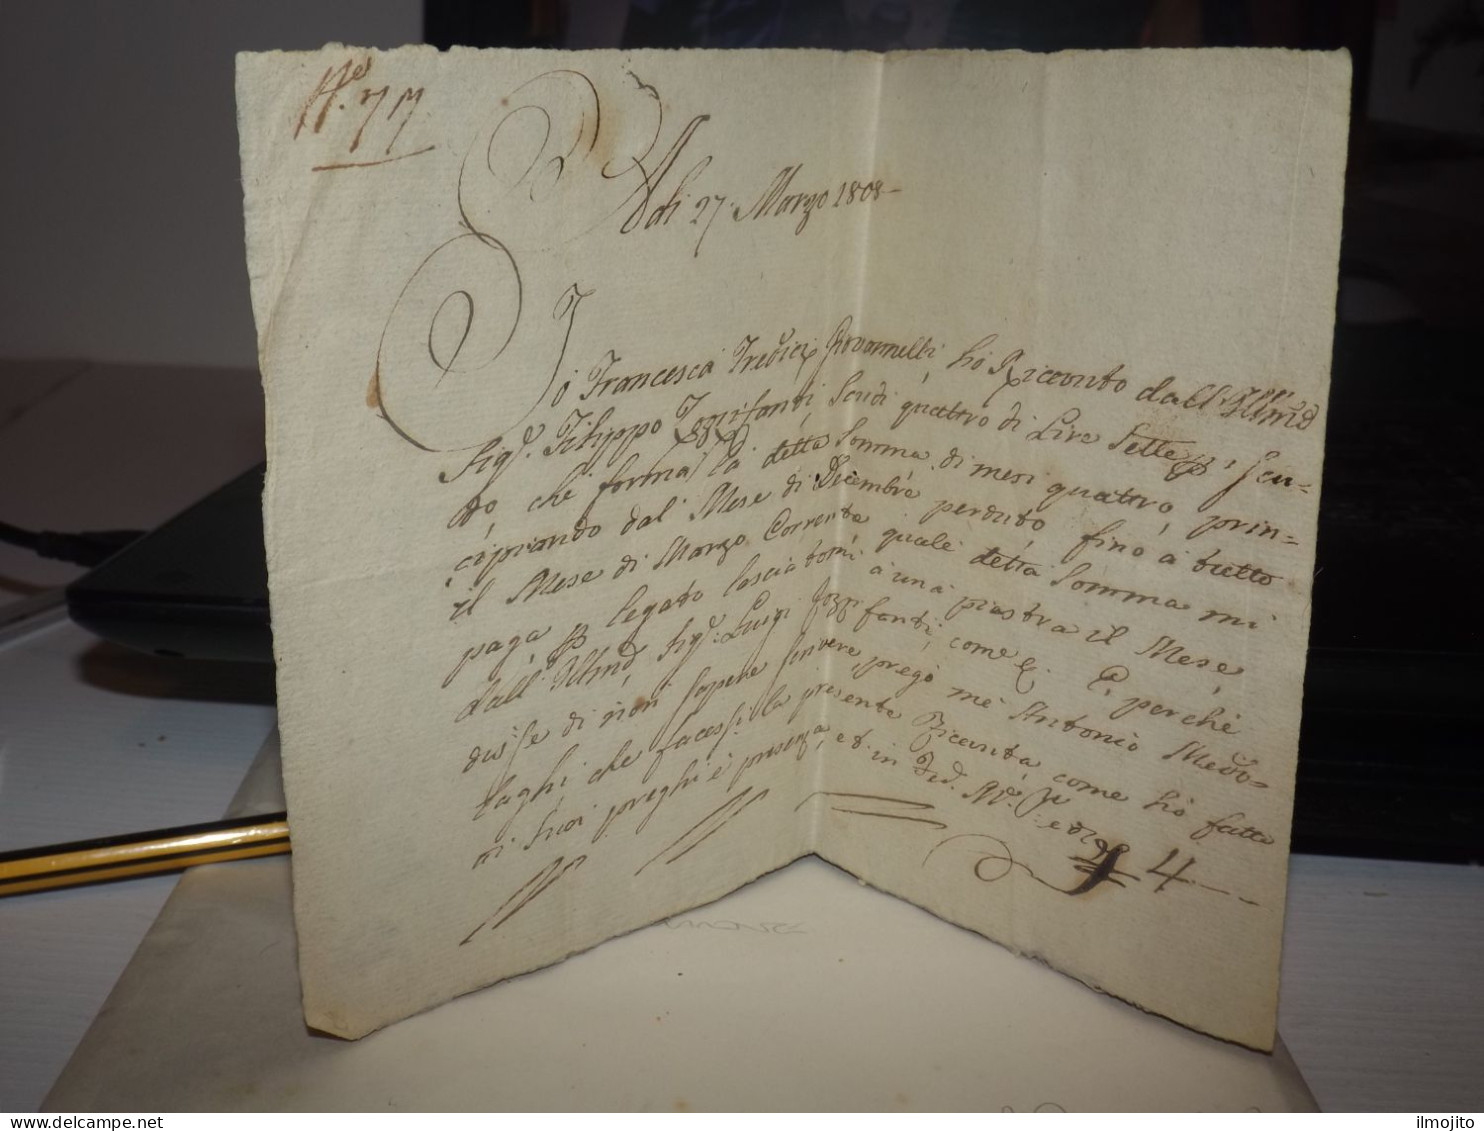 N.º 77
Adi 27. Marzo 1808
Io Francesca Tredici Giovannelli, hò Riceuuto dall' Illmo
Sig.r Filippo Scudi quattro di Lire Sette p. Scu-
do, che forma la detta Somma di mesi quattro, prin-
cipiando dal Mese di Dicembre perduto fino à tutto
il Mese di Marzo Corrente quale detta Somma mi
paga p legato lasciatomi à una piastra il Mese,
dall' Illmo Sig.r Luigi come E perche
disse di non sapere scrivere, pregò me Antonio Medo-
laghi che facessi la presente Riceuuta come hò fatto
ni suoi preghi è presenza, et in Fed.
4
delcampe.net
ilmojito